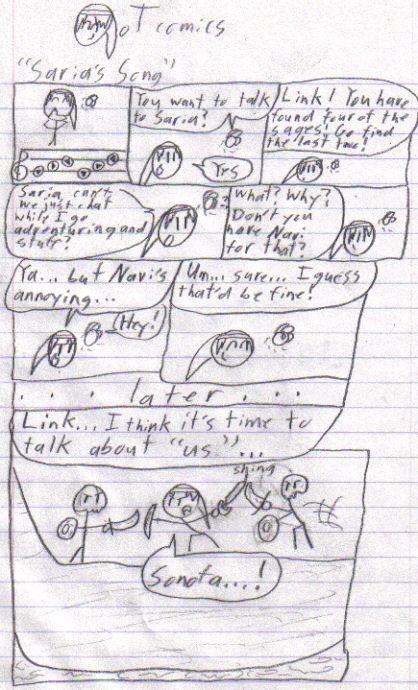 oT comics
"Saria's Song"
You want to talk
to Saria?
Yes
Link! You have
found four of the
sages! Go find
the last two!
Saria can't
we just chat
while I go
adventuring and
stuff?
What? Why?
Don't you
have Navi
for that?
Ya... but Navi's
annoying...
Hey!
Um... sure... I guess
that'd be fine!
. . . later . . .
Link... I think it's time to
talk about "us"...
shing
Sonofa....!